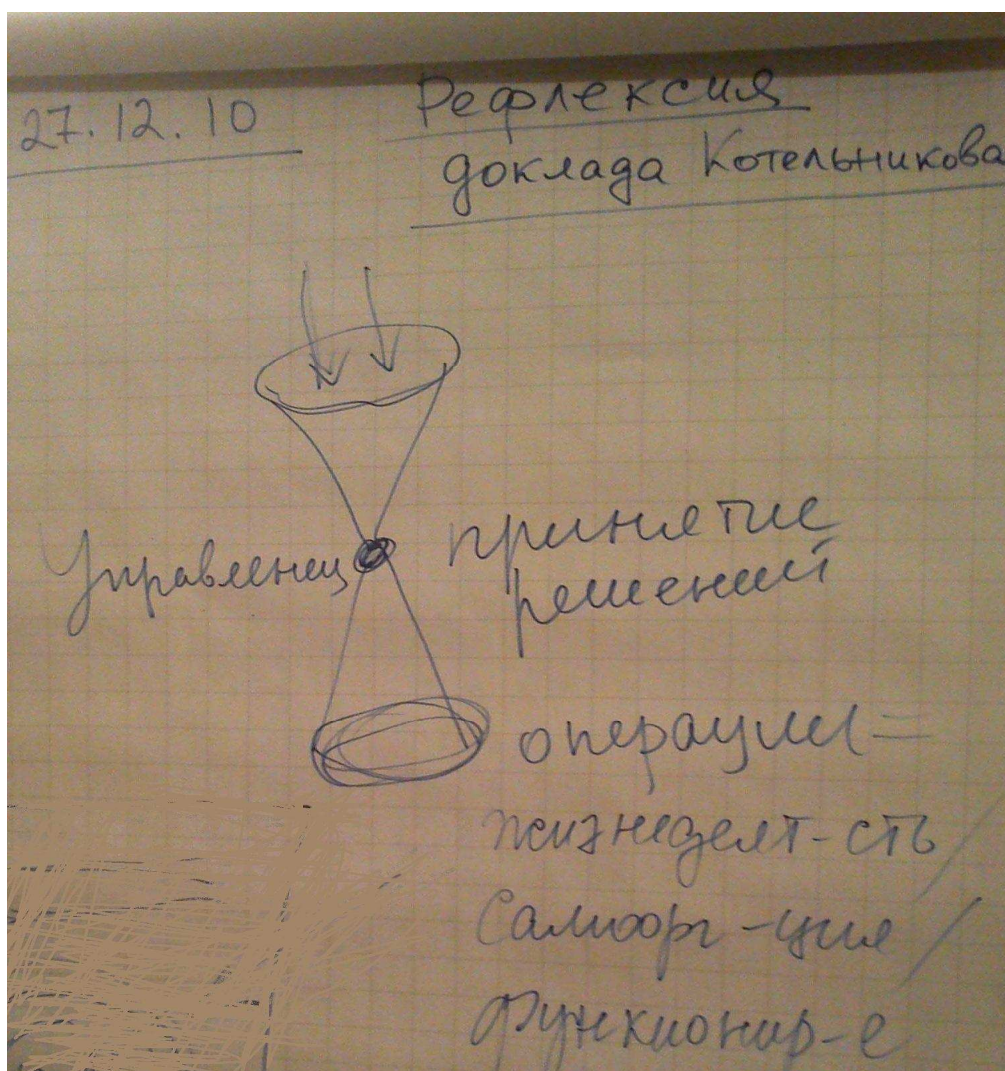 27.12.10
Рефлексия
доклада Котельникова
Управленец
принятие
решений
операции =
жизнедеят-сть /
Самоорг-ция /
функционир-е